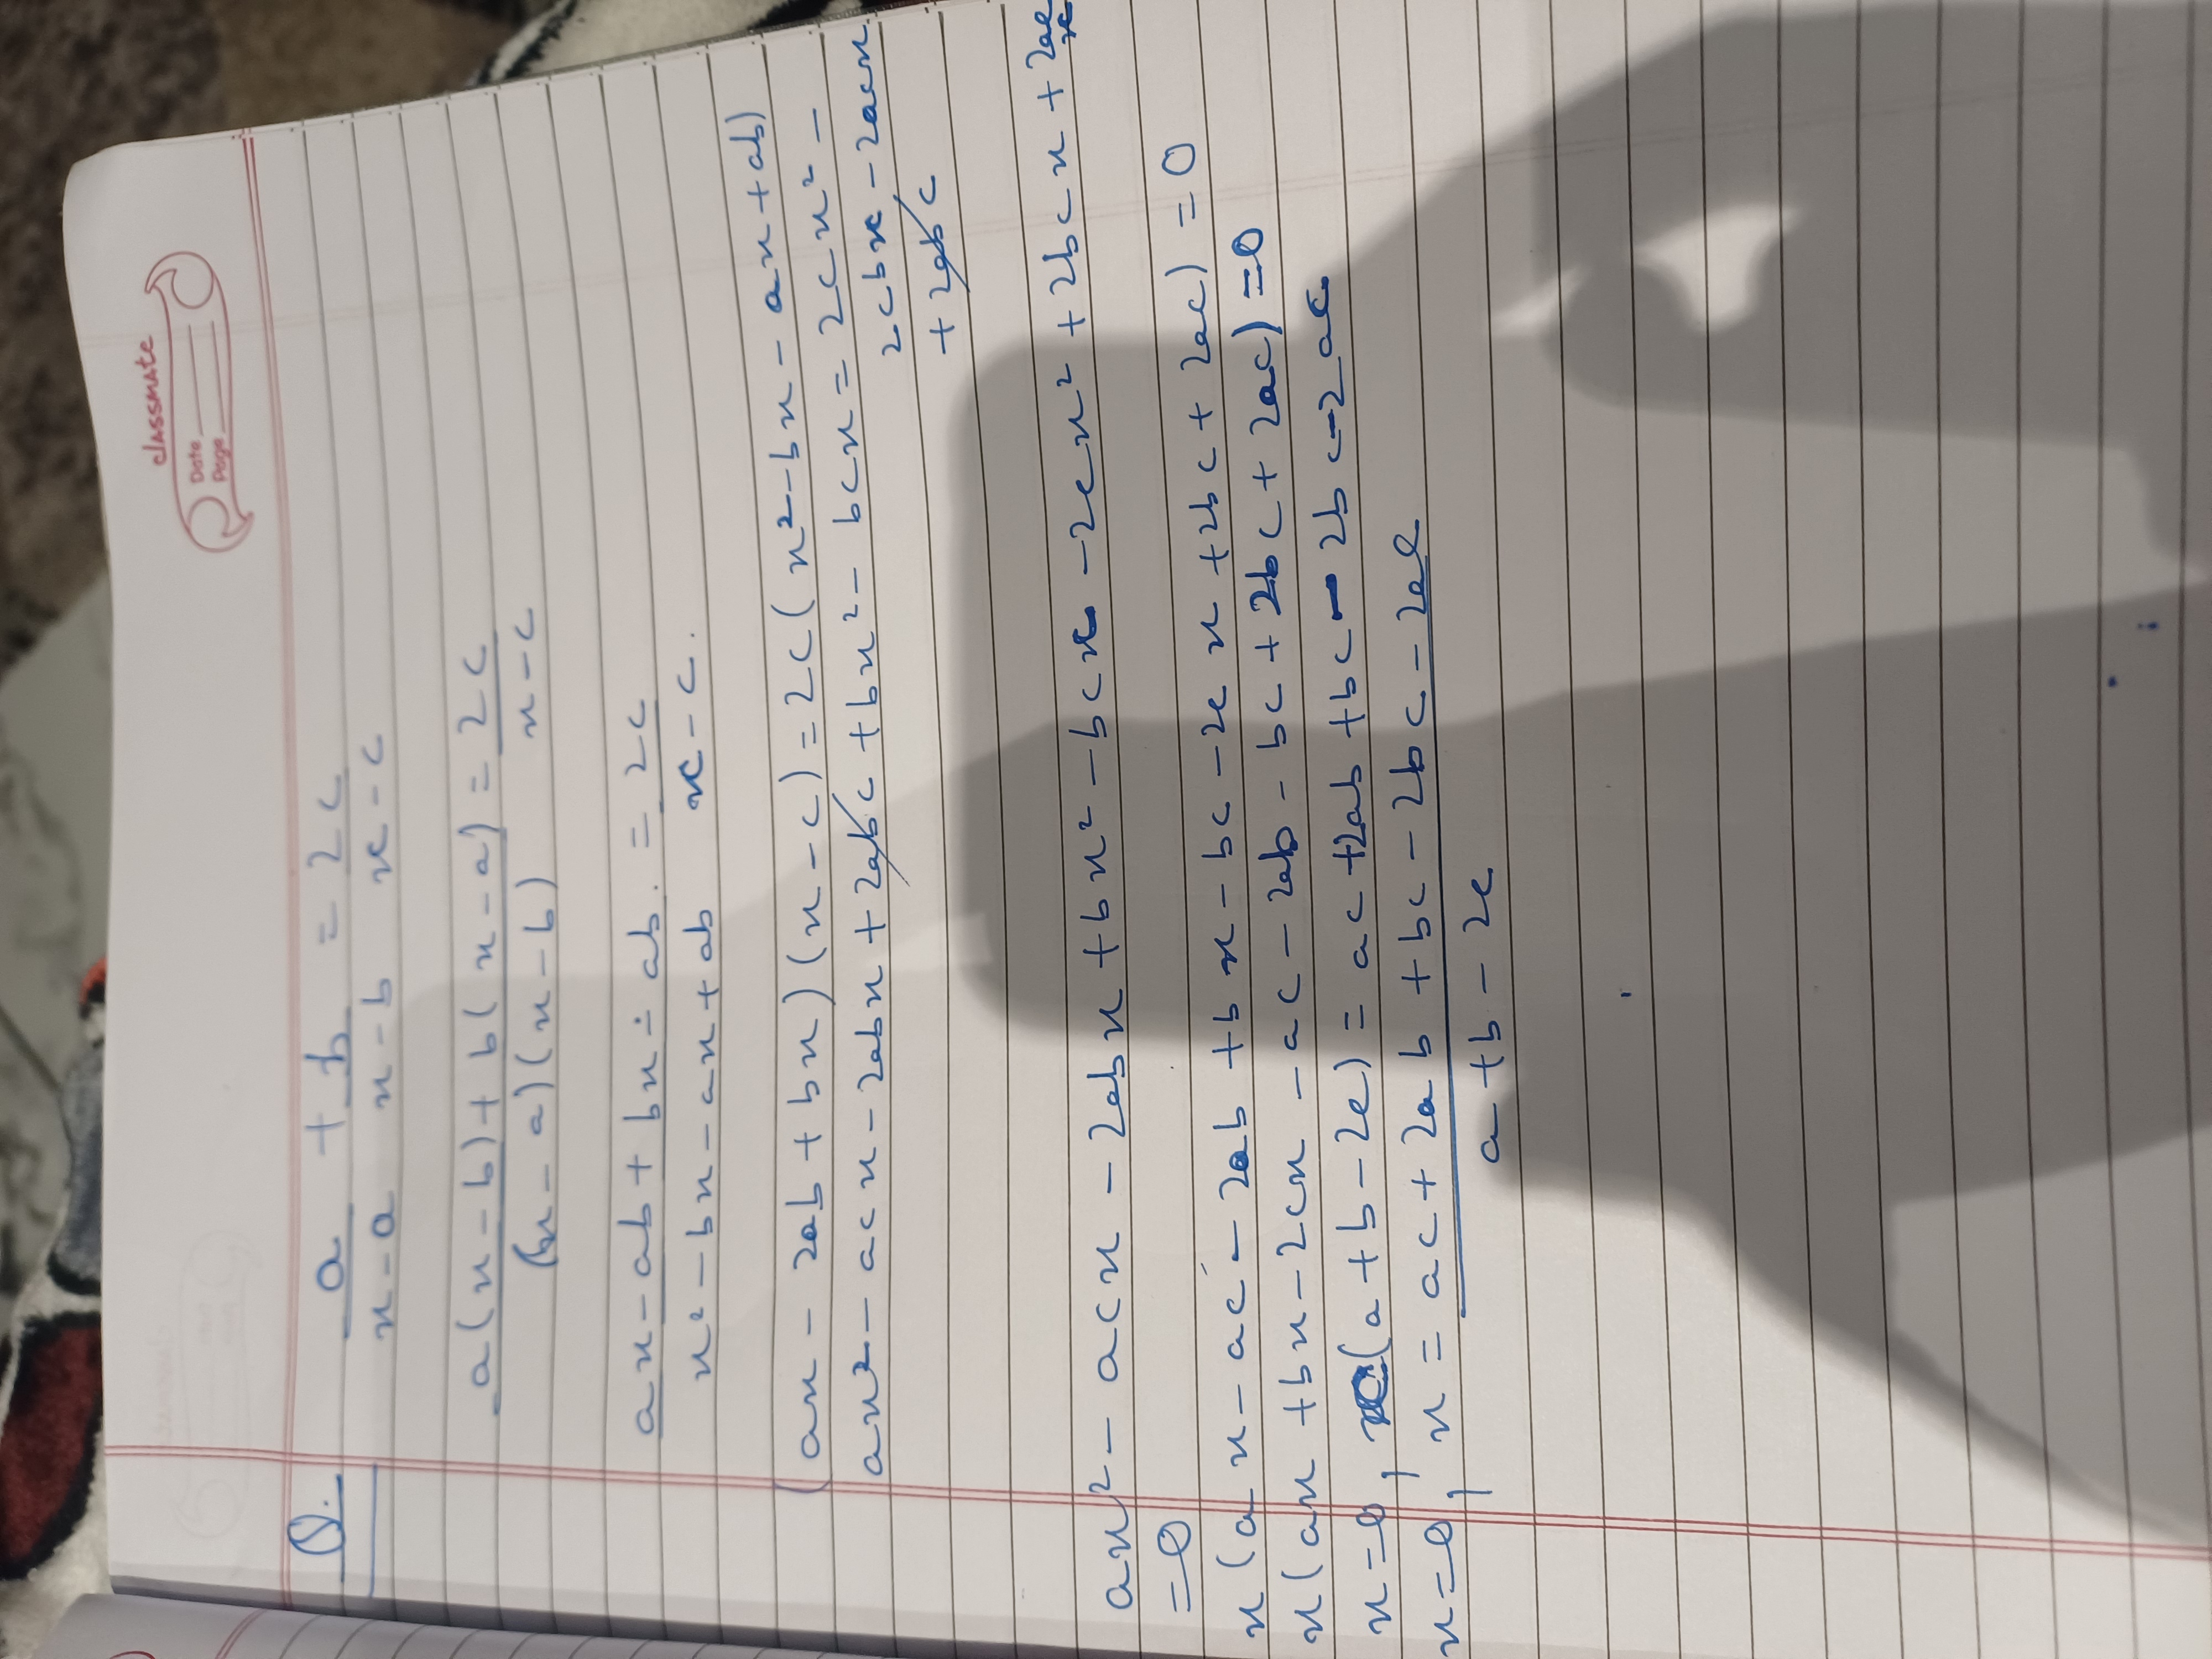 classmate
Date
Page
Q. a + b = 2c
x-a x-b x-c
a(x-b)+b(x-a) = 2c
(x-a)(x-b) x-c
ax-ab+bx-ab. = 2c
x²-bx-ax+ab x-c.
(ax-2ab+bx)(x-c)=2c(x²-bx-ax+ab)
ax²-acx-2abx+2abc+bx²-bcx=2cx²-
2cbx-2acx
+2abc
ax²-acx-2abx+bx²-bcx-2cx²+2bcx+2acx
=0
x(ax-ac-2ab+bx-bc-2cx+2bc+2ac)=0
x(ax+bx-2cx-ac-2ab-bc+2bc+2ac)=0
x=0, x(a+b-2c)=ac+2ab+bc-2bc-2ac
x=0, x=ac+2ab+bc-2bc-2ac
a+b-2c